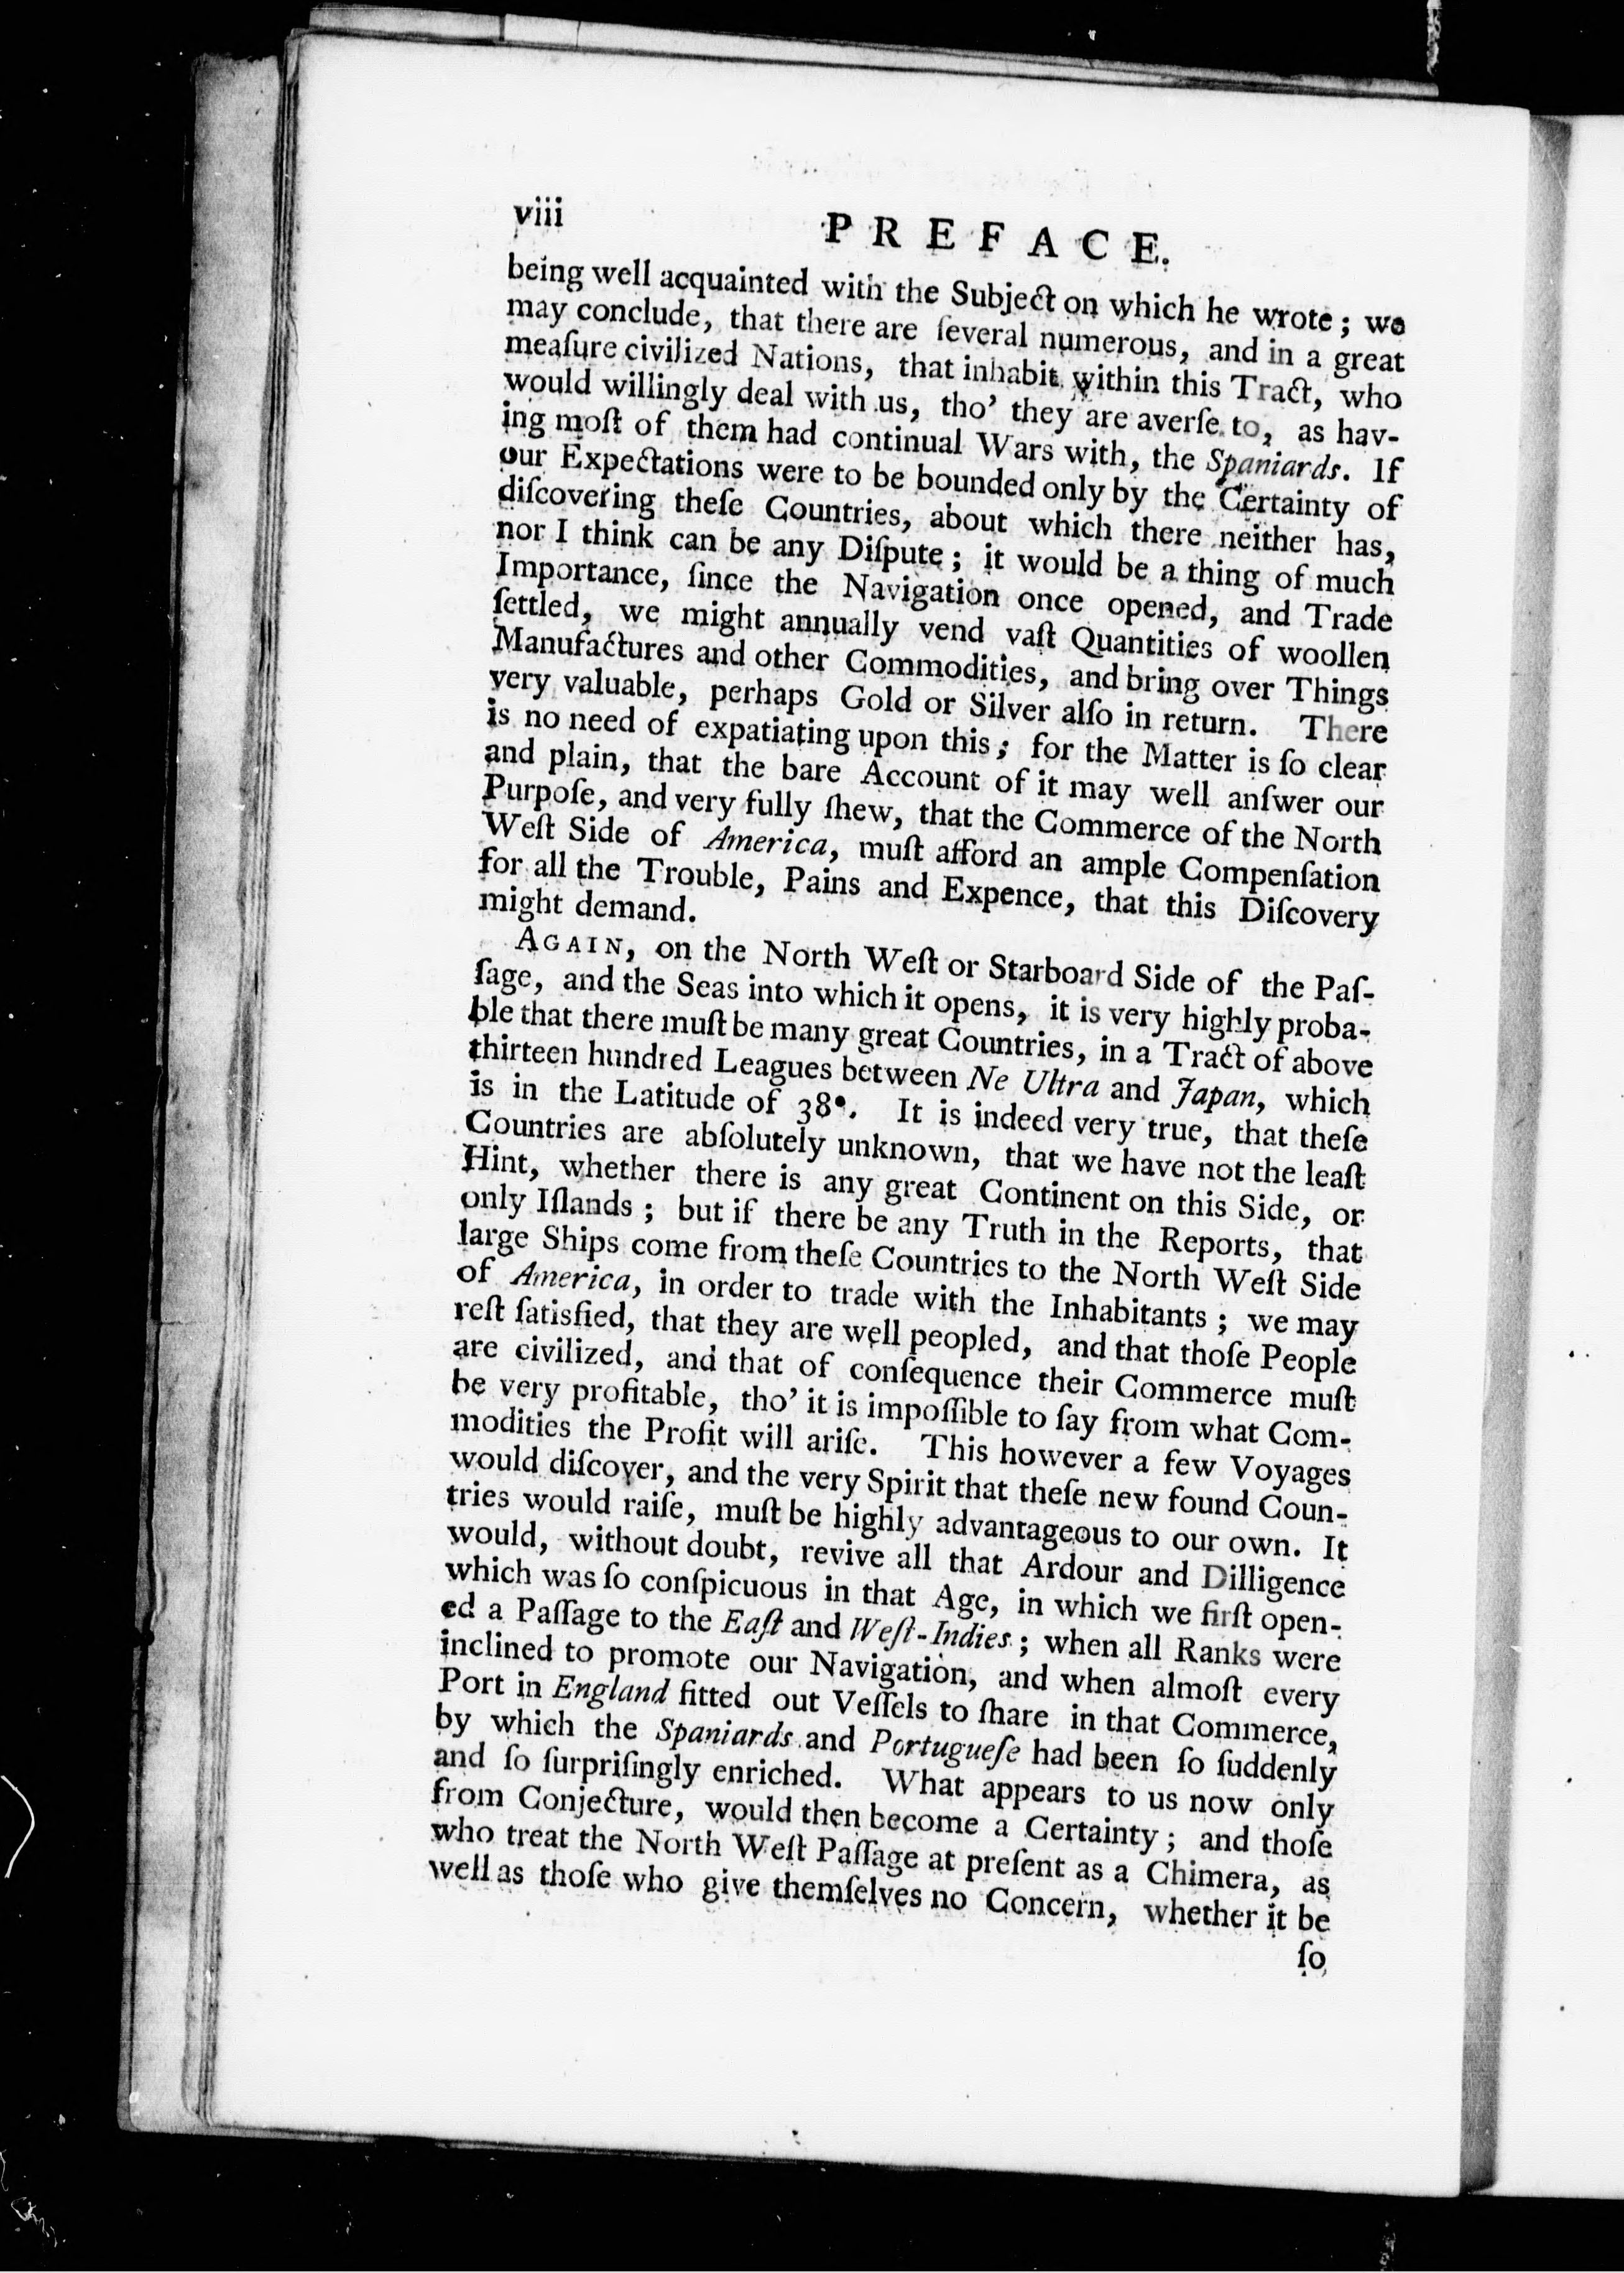 viii PREFACE.
being well acquainted with the Subject on which he wrote; we
may conclude, that there are ſeveral numerous, and in a great
meaſure civilized Nations, that inhabit within this Tract, who
would willingly deal with us, tho' they are averſe to, as hav-
ing moſt of them had continual Wars with, the Spaniards. If
our Expectations were to be bounded only by the Certainty of
diſcovering theſe Countries, about which there neither has,
nor I think can be any Diſpute; it would be a thing of much
Importance, ſince the Navigation once opened, and Trade
ſettled, we might annually vend vaſt Quantities of woollen
Manufactures and other Commodities, and bring over Things
very valuable, perhaps Gold or Silver alſo in return. There
is no need of expatiating upon this; for the Matter is ſo clear
and plain, that the bare Account of it may well anſwer our
Purpoſe, and very fully ſhew, that the Commerce of the North
Weſt Side of America, muſt afford an ample Compenſation
for all the Trouble, Pains and Expence, that this Diſcovery
might demand.
AGAIN, on the North Weſt or Starboard Side of the Paſ-
ſage, and the Seas into which it opens, it is very highly proba-
ble that there muſt be many great Countries, in a Tract of above
thirteen hundred Leagues between Ne Ultra and Japan, which
is in the Latitude of 38°. It is indeed very true, that theſe
Countries are abſolutely unknown, that we have not the leaſt
Hint, whether there is any great Continent on this Side, or
only Iſlands; but if there be any Truth in the Reports, that
large Ships come from theſe Countries to the North Weſt Side
of America, in order to trade with the Inhabitants; we may
reſt ſatisfied, that they are well peopled, and that thoſe People
are civilized, and that of conſequence their Commerce muſt
be very profitable, tho' it is impoſſible to ſay from what Com-
modities the Profit will ariſe. This however a few Voyages
would diſcover, and the very Spirit that theſe new found Coun-
tries would raiſe, muſt be highly advantageous to our own. It
would, without doubt, revive all that Ardour and Dilligence
which was ſo conſpicuous in that Age, in which we firſt open-
ed a Paſſage to the Eaſt and Weſt-Indies; when all Ranks were
inclined to promote our Navigation, and when almoſt every
Port in England fitted out Veſſels to ſhare in that Commerce,
by which the Spaniards and Portugueſe had been ſo ſuddenly
and ſo ſurpriſingly enriched. What appears to us now only
from Conjecture, would then become a Certainty; and thoſe
who treat the North Weſt Paſſage at preſent as a Chimera, as
well as thoſe who give themſelves no Concern, whether it be
ſo